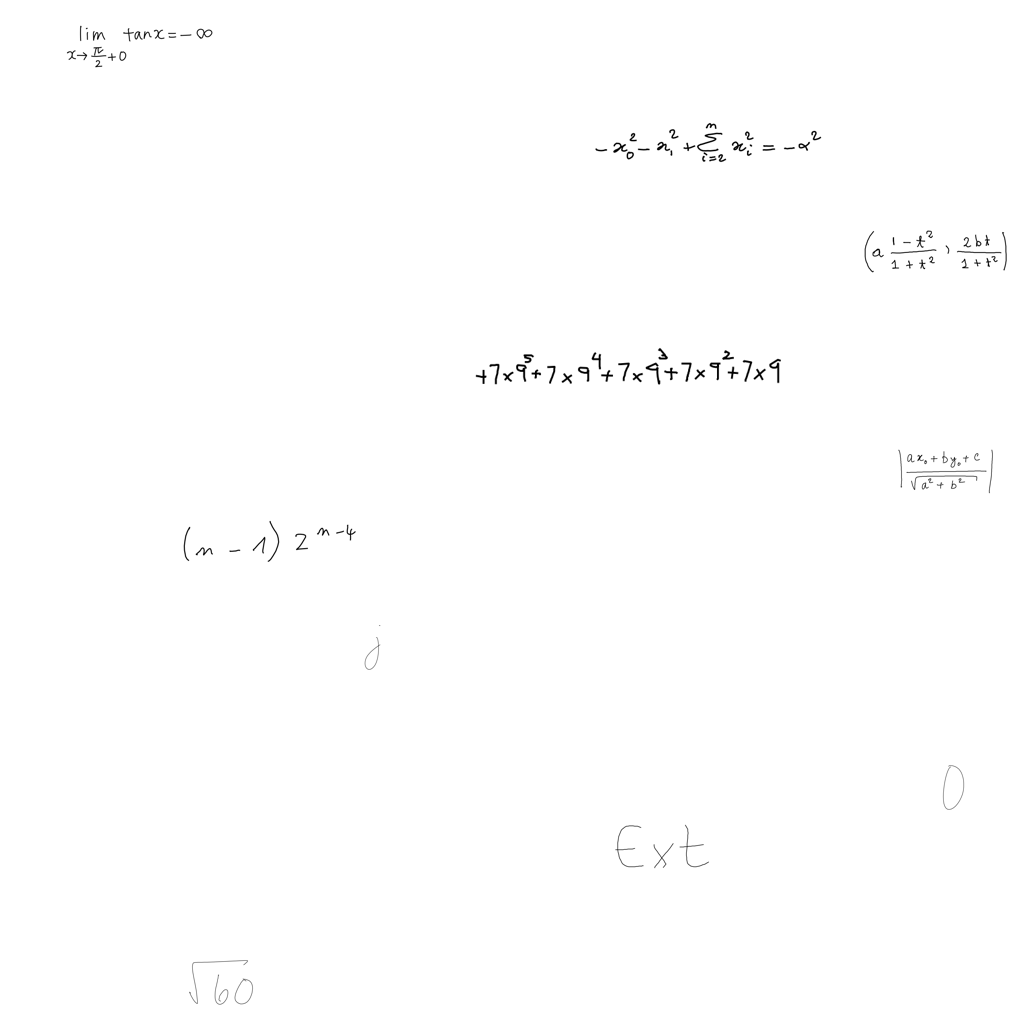 \lim_{x \to \frac{\pi}{2}+0} \tan x = -\infty
-x_0^2 - x_1^2 + \sum_{i=2}^{n} x_i^2 = -\alpha^2
\left( a \frac{1-t^2}{1+t^2}, \frac{2bt}{1+t^2} \right)
+7 \times 9^5 + 7 \times 9^4 + 7 \times 9^3 + 7 \times 9^2 + 7 \times 9
\left| \frac{ax_0 + by_0 + c}{\sqrt{a^2 + b^2}} \right|
(n-1) 2^{n-4}
j
0
Ext
\sqrt{60}